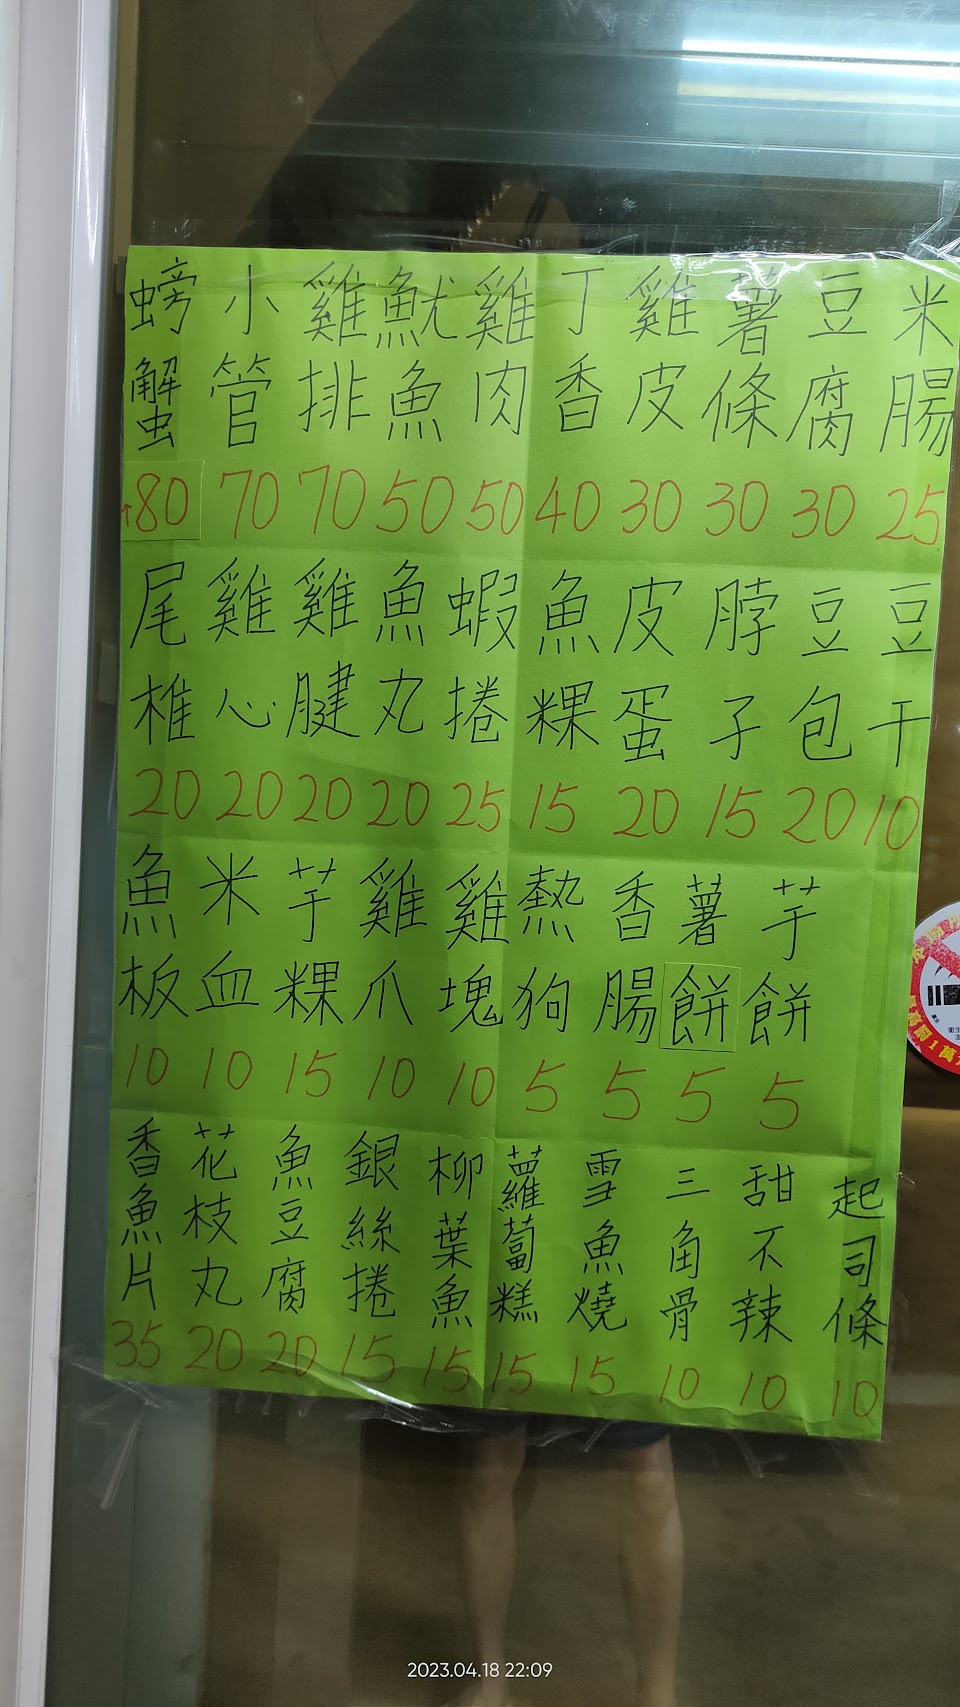 螃蟹 ↑80
小管 70
雞排 70
魷魚 50
雞肉 50
丁香 40
雞皮 30
薯條 30
豆腐 30
米腸 25
尾椎 20
雞心 20
雞腱 20
魚丸 20
蝦捲 25
魚粿 15
皮蛋 20
脖子 15
豆包 20
豆干 10
魚板 10
米血 10
芋粿 15
雞爪 10
雞塊 10
熱狗 5
香腸 5
薯餅 5
芋餅 5
香魚片 35
花枝丸 20
魚豆腐 20
銀絲捲 15
柳葉魚 15
蘿蔔糕 15
雪魚燒 15
三角骨 10
甜不辣 10
起司條 10
2023.04.18 22:09